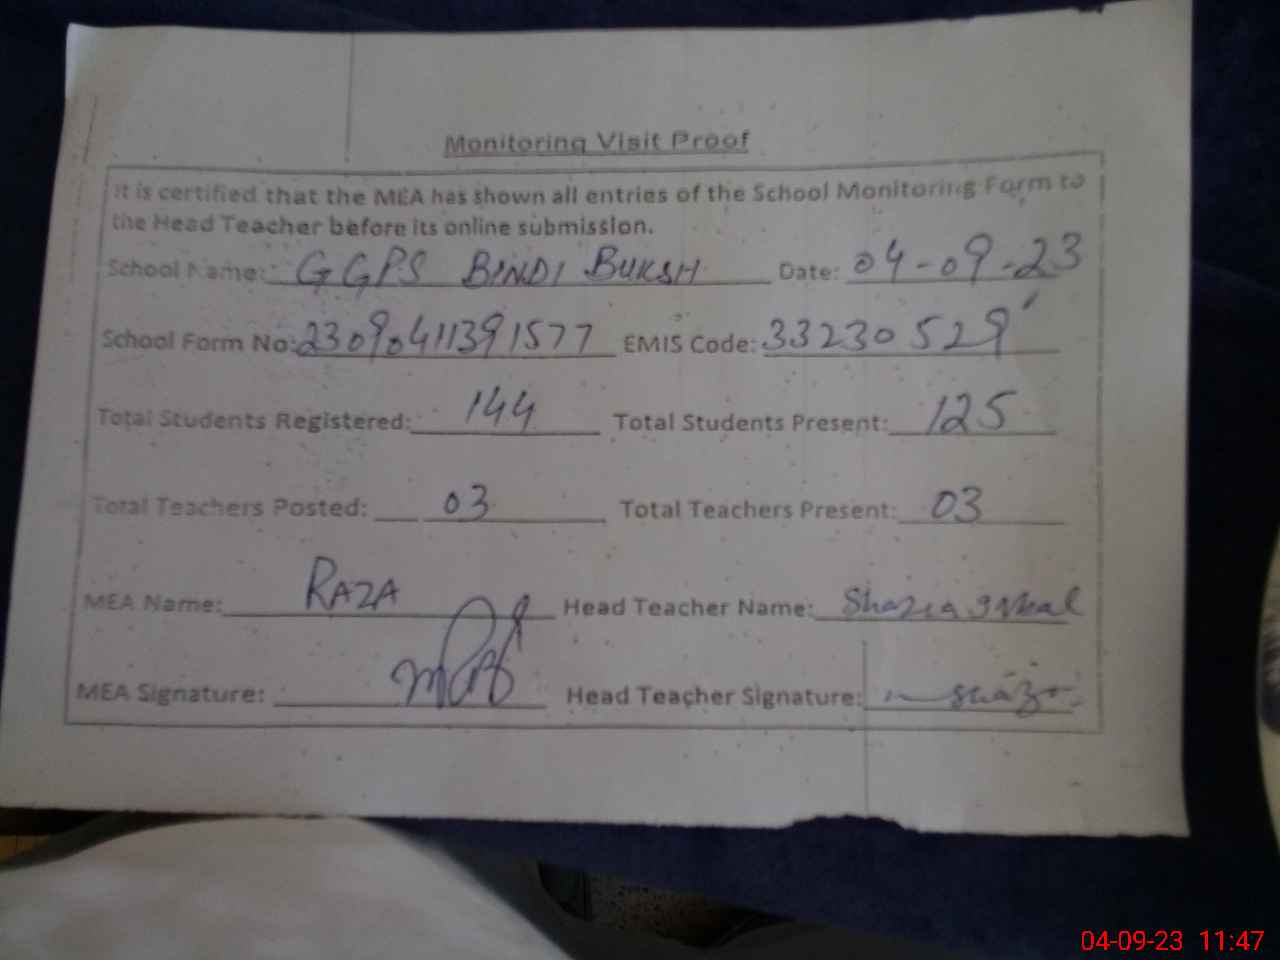 Monitoring Visit Proof
It is certified that the MEA has shown all entries of the School Monitoring Form to
the Head Teacher before its online submission.
School Name: GGPS BINDI BUKSH Date: 04-09-23
School Form No: 23090411391577 EMIS Code: 33230529
Total Students Registered: 144 Total Students Present: 125
Total Teachers Posted: 03 Total Teachers Present: 03
MEA Name: RAZA Head Teacher Name: Shazia
MEA Signature: Head Teacher Signature:
04-09-23 11:47